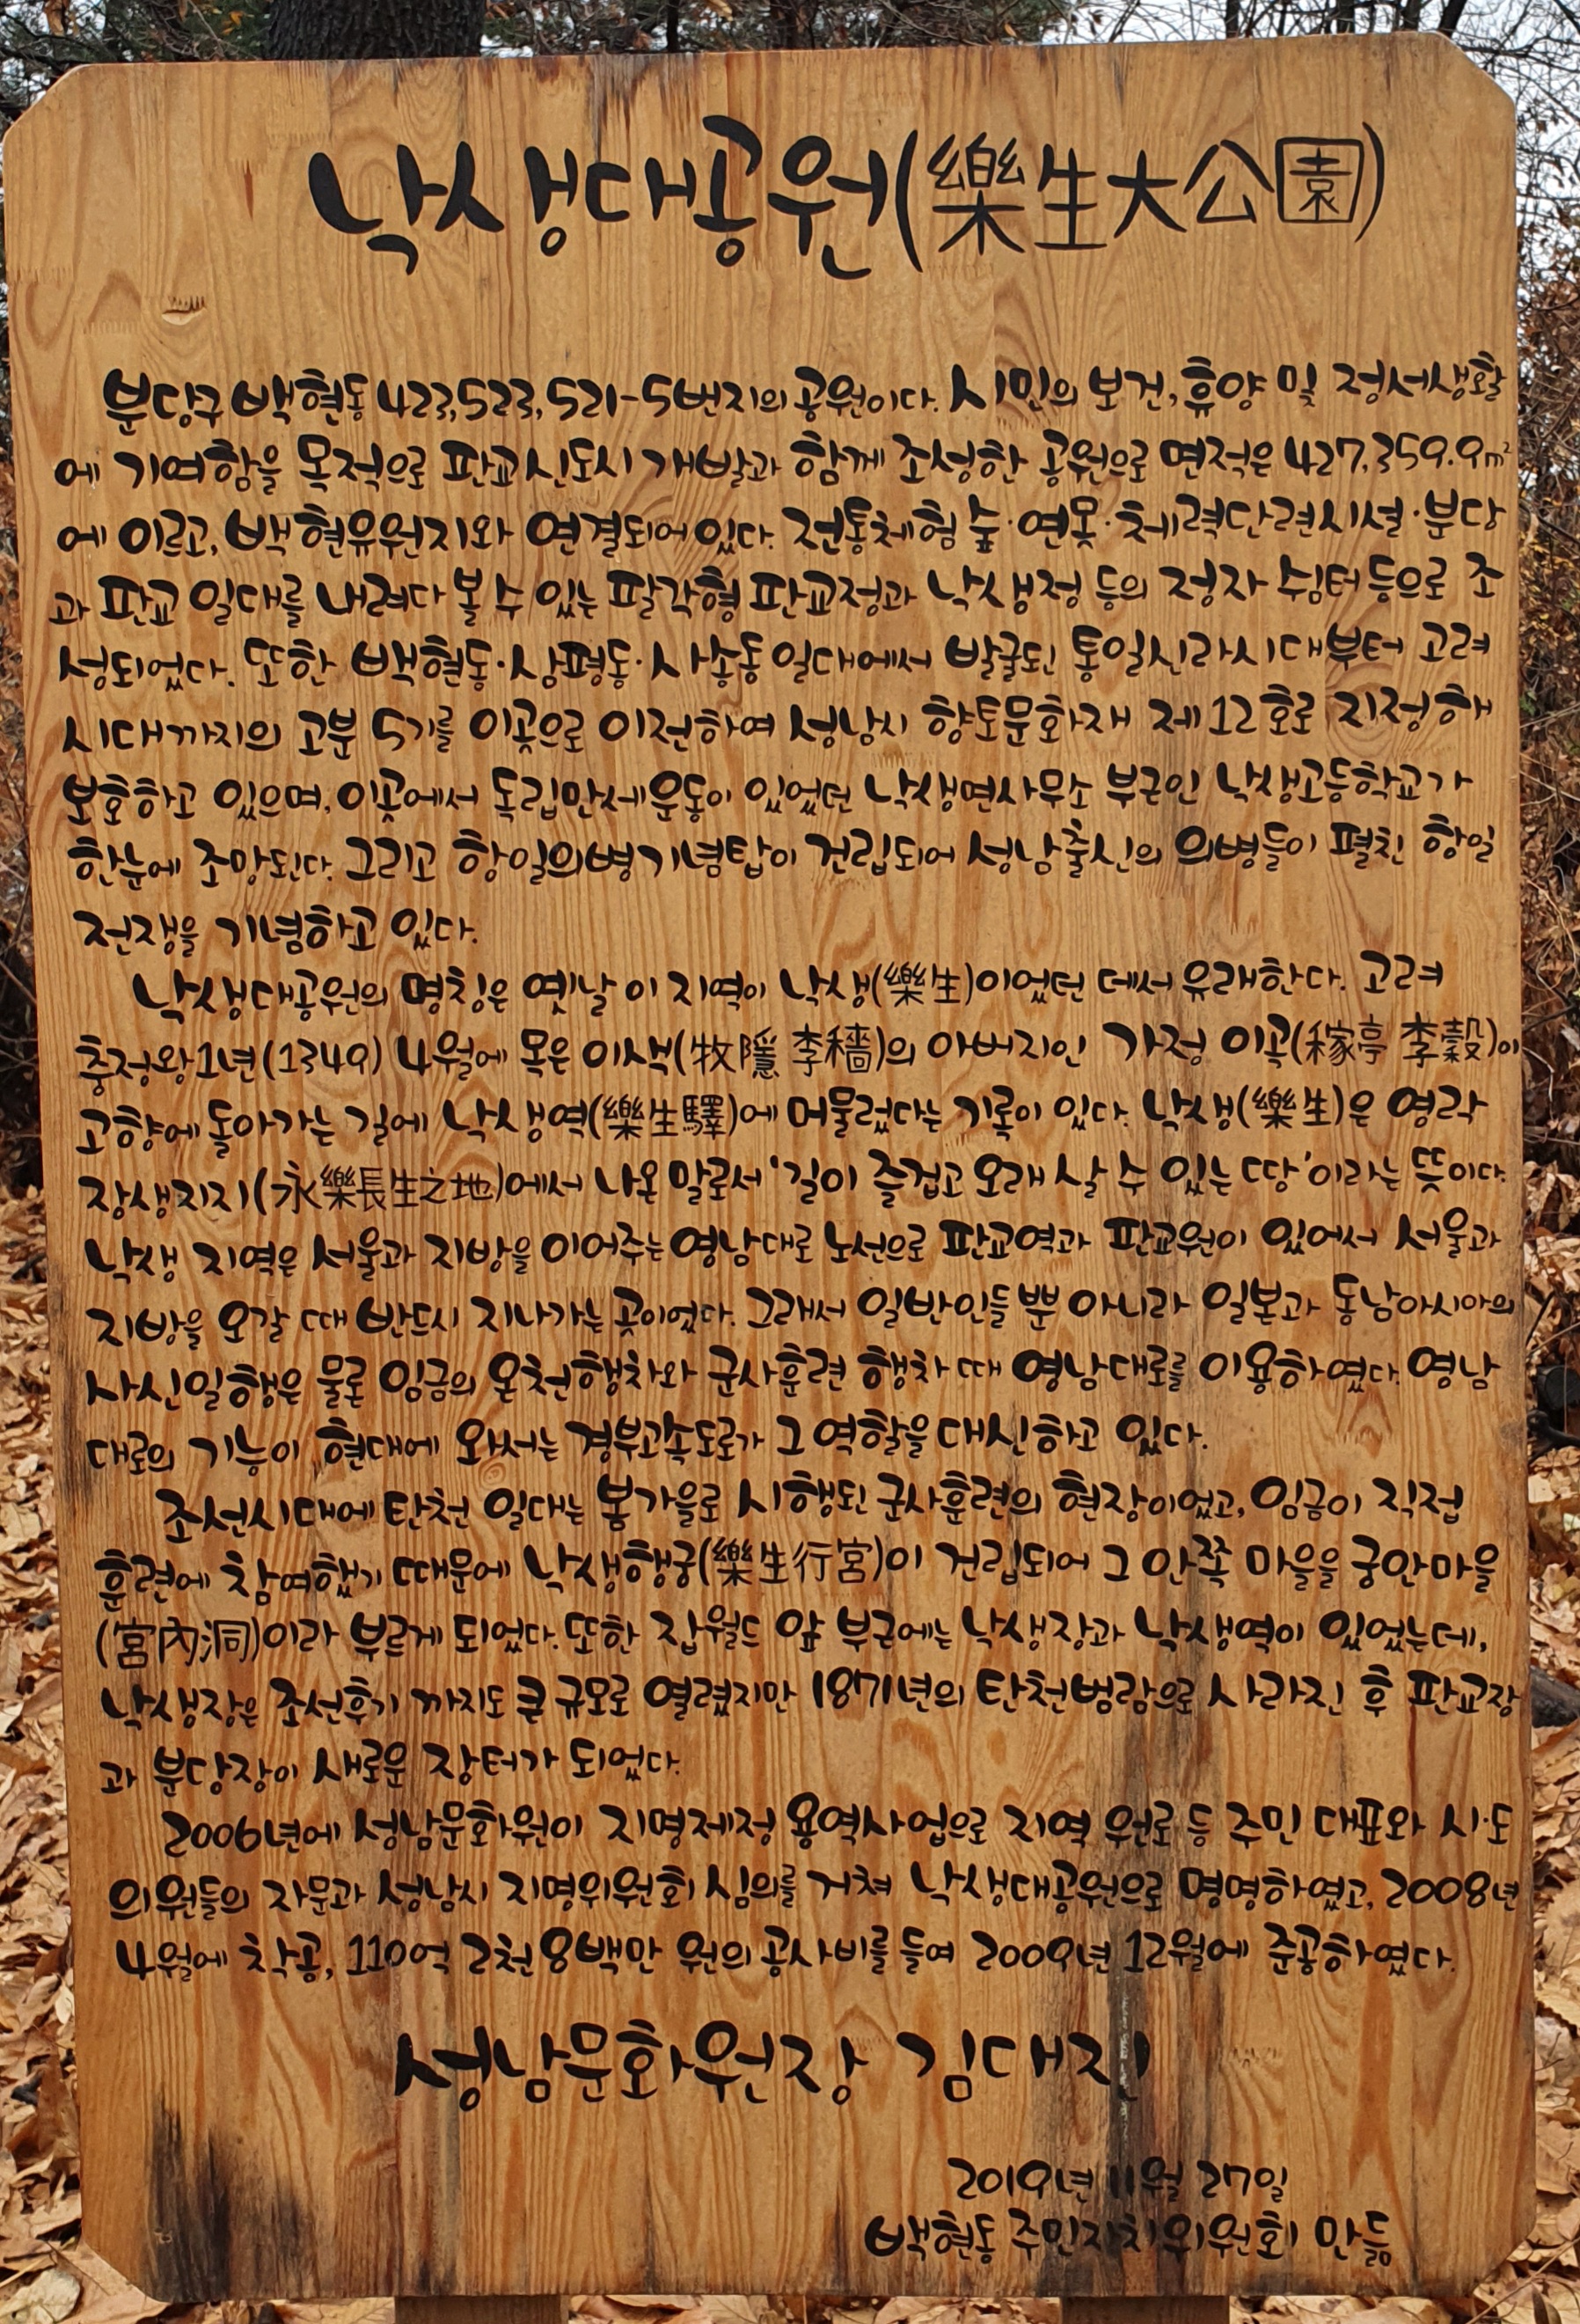 낙생대공원(樂生大公園)
분당구 백현동 423,523,521-5번지의 공원이다. 시민의 보건, 휴양 및 정서생활
에 기여함을 목적으로 판교신도시 개발과 함께 조성한 공원으로 면적은 427,359.9㎡
에 이르고, 백현유원지와 연결되어 있다. 전통체험 숲·연못·체력단련시설·분당
과 판교 일대를 내려다 볼 수 있는 팔각형 판교정과 낙생정 등의 정자 쉼터 등으로 조
성되었다. 또한 백현동·삼평동·사송동 일대에서 발굴된 통일신라시대부터 고려
시대까지의 고분 5기를 이곳으로 이전하여 성남시 향토문화재 제12호로 지정해
보호하고 있으며, 이곳에서 독립만세운동이 있었던 낙생면사무소 부근인 낙생고등학교가
한눈에 조망된다. 그리고 항일의병기념탑이 건립되어 성남출신의 의병들이 펼친 항일
전쟁을 기념하고 있다.
낙생대공원의 명칭은 옛날 이 지역이 낙생(樂生)이었던 데서 유래한다. 고려
충정왕1년(1349) 4월에 목은 이색(牧隱 李穡)의 아버지인 가정 이곡(稼亭 李穀)이
고향에 돌아가는 길에 낙생역(樂生驛)에 머물렀다는 기록이 있다. 낙생(樂生)은 영락
장생지지(永樂長生之地)에서 나온 말로서 '길이 즐겁고 오래 살 수 있는 땅'이라는 뜻이다.
낙생 지역은 서울과 지방을 이어주는 영남대로 노선으로 판교역과 판교원이 있어서 서울과
지방을 오갈 때 반드시 지나가는 곳이었다. 그래서 일반인들 뿐 아니라 일본과 동남아시아의
사신일행은 물론 임금의 온천행차와 군사훈련 행차 때 영남대로를 이용하였다. 영남
대로의 기능이 현대에 와서는 경부고속도로가 그 역할을 대신하고 있다.
조선시대에 탄천 일대는 봄가을로 시행된 군사훈련의 현장이었고, 임금이 직접
훈련에 참여했기 때문에 낙생행궁(樂生行宮)이 건립되어 그 안쪽 마을을 궁안마을
(宮內洞)이라 부르게 되었다. 또한 잡월드 앞 부근에는 낙생장과 낙생역이 있었는데,
낙생장은 조선후기 까지도 큰 규모로 열렸지만 1871년의 탄천범람으로 사라진 후 판교장
과 분당장이 새로운 장터가 되었다.
2006년에 성남문화원이 지명제정 용역사업으로 지역 원로 등 주민 대표와 시·도
의원들의 자문과 성남시 지명위원회 심의를 거쳐 낙생대공원으로 명명하였고, 2008년
4월에 착공, 110억 2천 8백만 원의 공사비를 들여 2009년 12월에 준공하였다.
성남문화원장 김대진
2019년 11월 27일
백현동 주민자치위원회 만듦